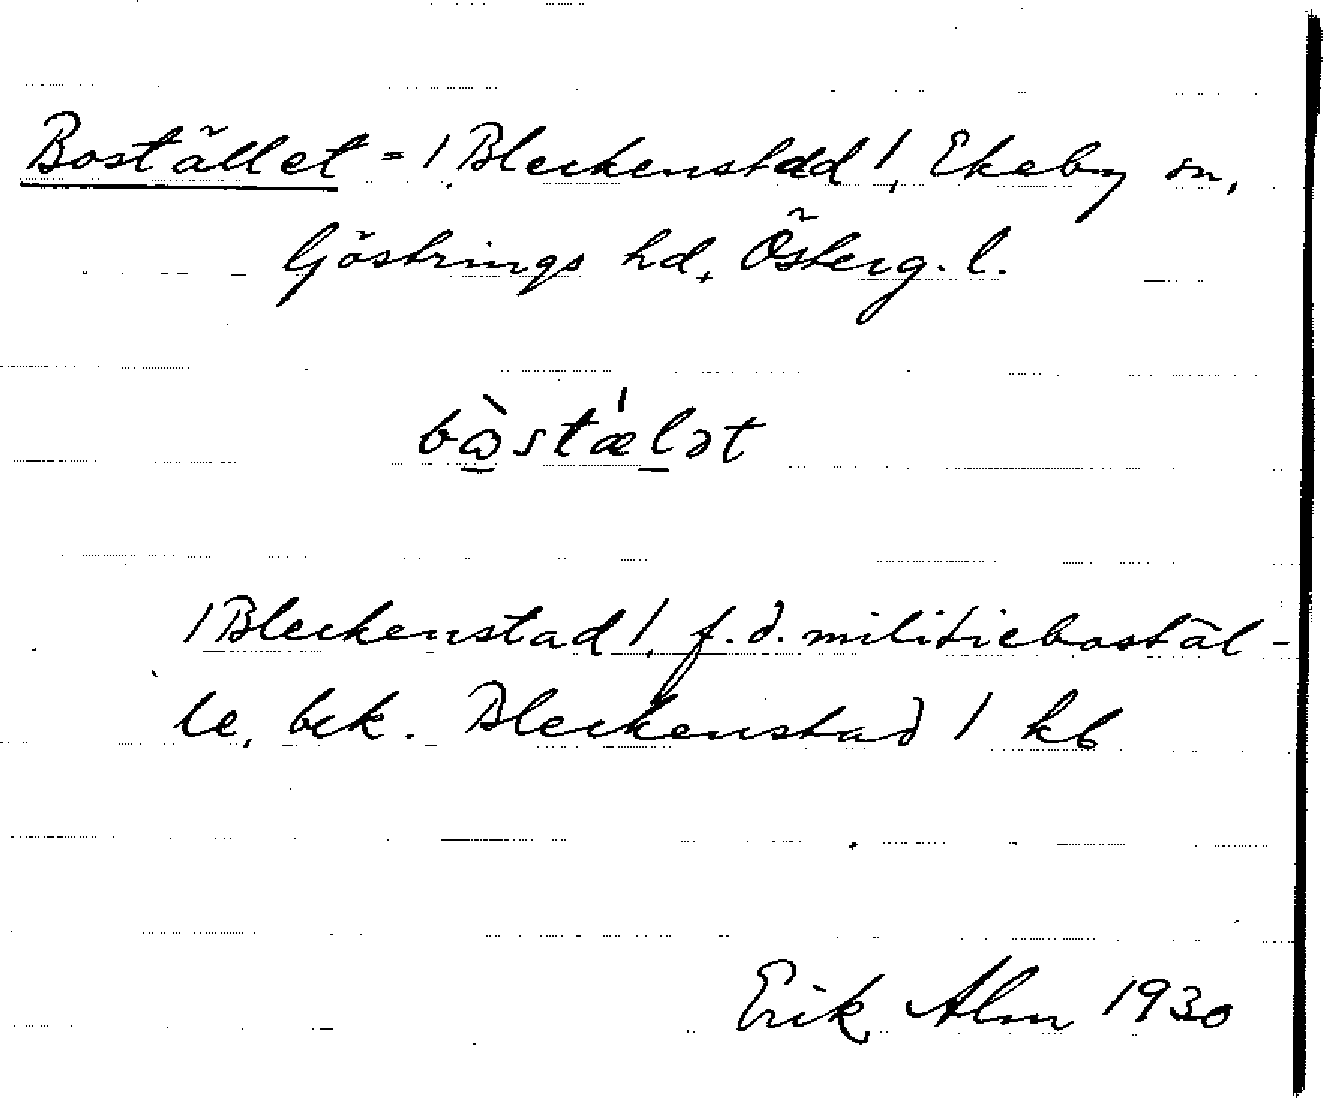 Bostället = /Bleckenstad/, Ekeby sn,
Göstrings hd, Österg. l.
bòstæ̍lət
/Bleckenstad/, f.d. militiebostäl-
le, bek. Bleckenstad / kb
Erik Alm 1930